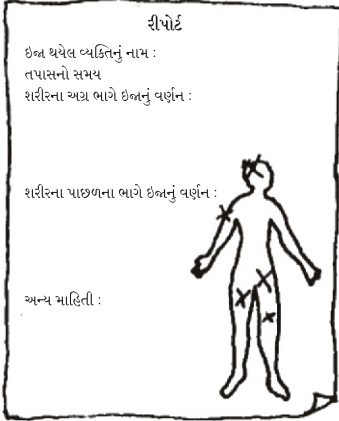 રીપોર્ટ
ઇજા થયેલ વ્યક્તિનું નામ :
તપાસનો સમય
શરીરના અગ્ર ભાગે ઇજાનું વર્ણન :
શરીરના પાછળના ભાગે ઇજાનું વર્ણન :
અન્ય માહિતી :